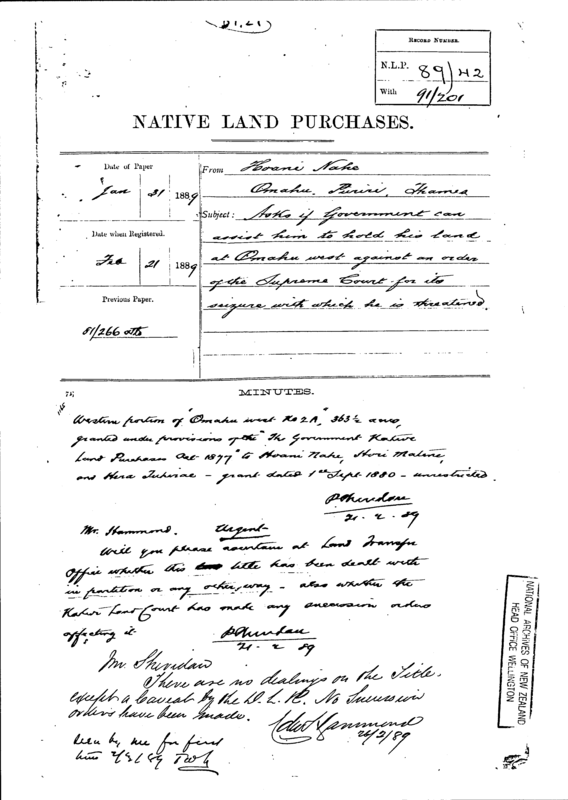 RECORD NUMBER.
N.L.P. 89/42
With 91/201
NATIVE LAND PURCHASES.
Date of Paper
Jan 31 1889
Date when Registered.
Feb 21 1889
Previous Paper.
81/266
From Hoani Nahe
Omahu. Puriri, Thames
Subject: Asks if Government can
assist him to hold his land
at Omahu west against an order
of the Supreme Court for its
seizure with which he is threatened.
MINUTES.
Western portion of "Omahu west No 2A", 363½ acres,
granted under provisions of the "The Government Native
Land Purchases Act 1877" to Hoani Nahe, Hori Matene,
and Hera - grant dated 1st Sept 1880 - unrestricted.
P Sheridan
21. 2. 89
Mr. Hammond. Urgent
Will you please ascertain at Land Transfer
Office whether this title has been dealt with
in partition or any other way - also whether the
Native Land Court has made any succession orders
affecting it.
P Sheridan
21. 2. 89
Mr Sheridan
There are no dealings on the Title
except a Caveat by the D.L.R. No Succession
orders have been made.
Hammond
26/2/89
Seen by me for first
time
NATIONAL ARCHIVES OF NEW ZEALAND
HEAD OFFICE WELLINGTON